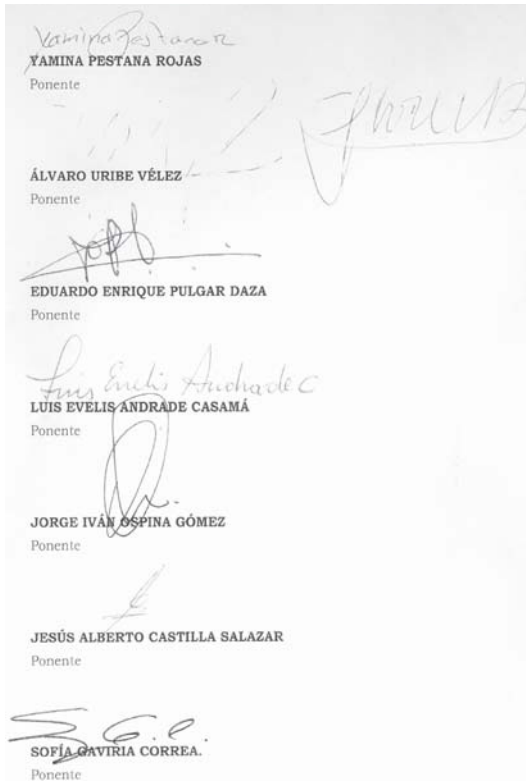 Yamina Pestana R
YAMINA PESTANA ROJAS
Ponente
ÁLVARO URIBE VÉLEZ
Ponente
EDUARDO ENRIQUE PULGAR DAZA
Ponente
Luis Evelis Andrade C
LUIS EVELIS ANDRADE CASAMÁ
Ponente
JORGE IVÁN OSPINA GÓMEZ
Ponente
JESÚS ALBERTO CASTILLA SALAZAR
Ponente
SOFÍA GAVIRIA CORREA.
Ponente